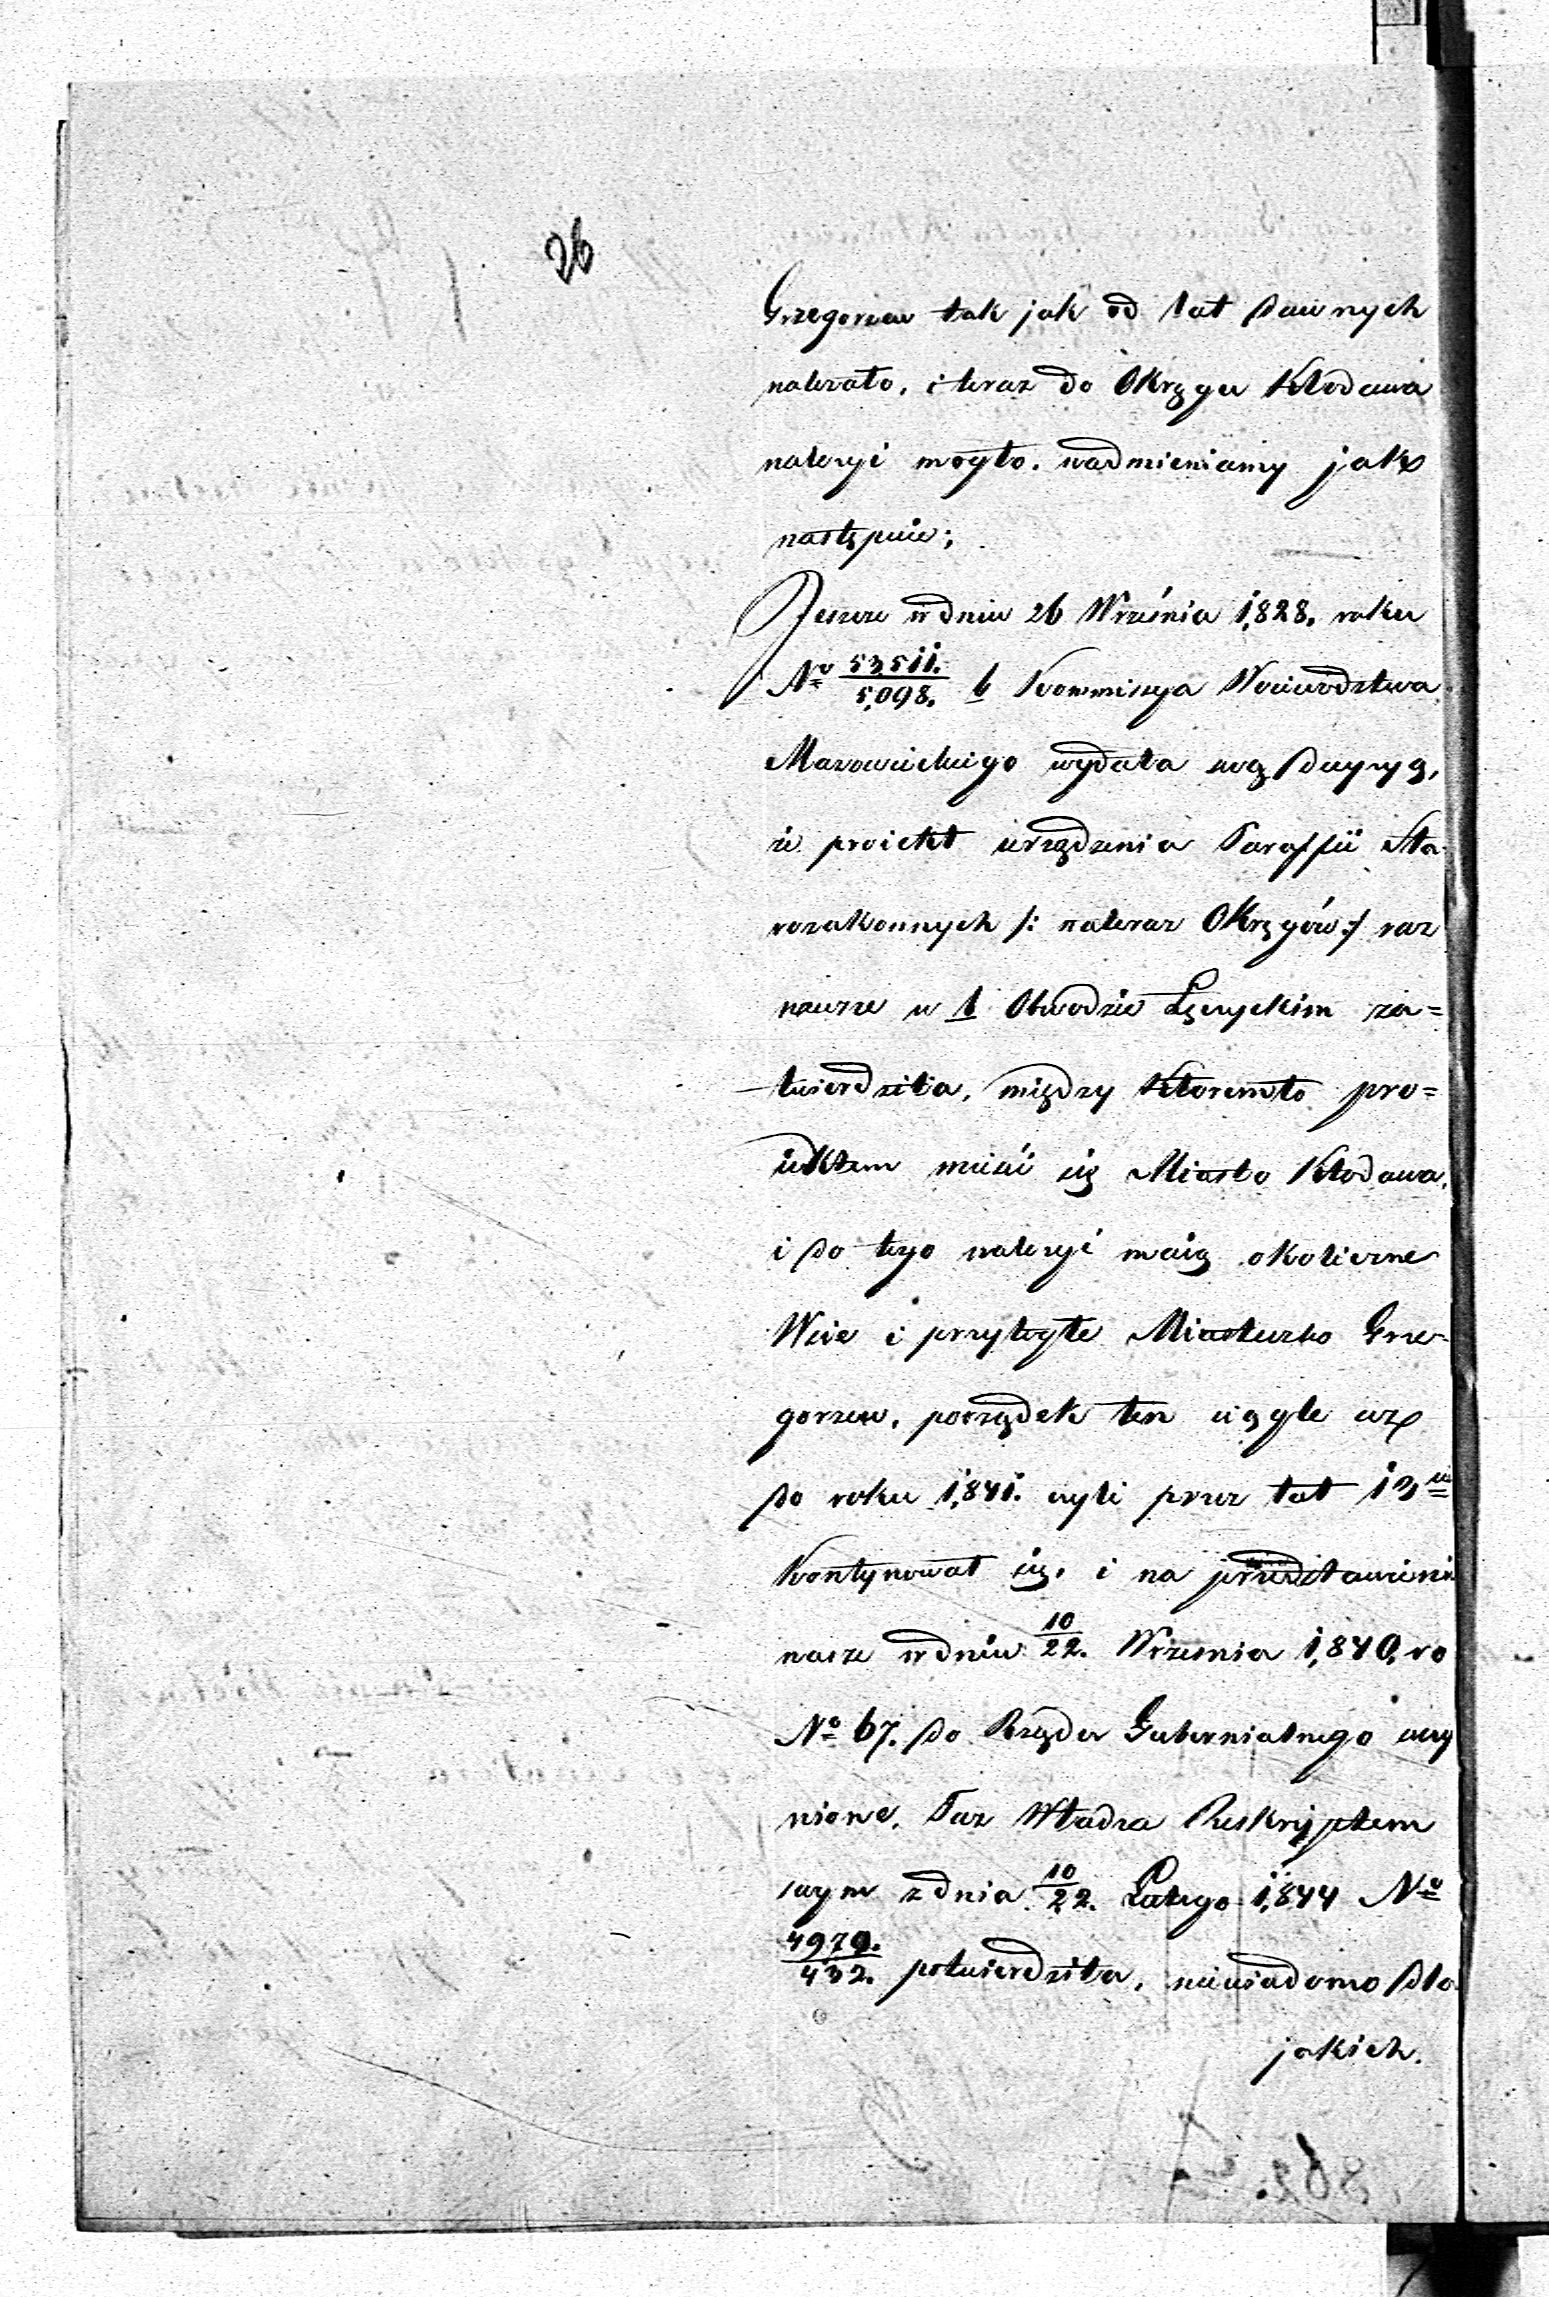 26
Grzegorzew tak jak od lat dawnych
należało, i teraz do Okręgu Kłodawa
należyć mogło. nadmieniamy jak
następuie;
Jeszcze w dniu 26 Września 1,828. roku
№ 53511./5,098. b Kommissya Woiewództwa
Mazowieckiego wydała swą decyzyą,
że proiekt urządzenia Paraffii Sta-
rozakonnych /: na teraz Okręgów :/ raz
na zawsze w b Obwodzie Łęczyckim za=
twierdziła, między któremto pro=
iektem mieści się Miasto Kłodawa,
i do tego należyć maią okoliczne
Wsie i przyległe Miasteczko Grze-
gorzew, porządek ten ciągle aż
do roku 1,841. czyli przez lat 13
Kontynował się. i na przedstawienie
nasze w dniu 10/22. Września 1,840, ro
№ 67. do Rządu Gubernialnego uczy
nione, Taż Władza Reskryptem
swym z dnia 10/22. Lutego 1,844 №
4979./432. potwierdziła, niewiadomo dla
jakich.
862.